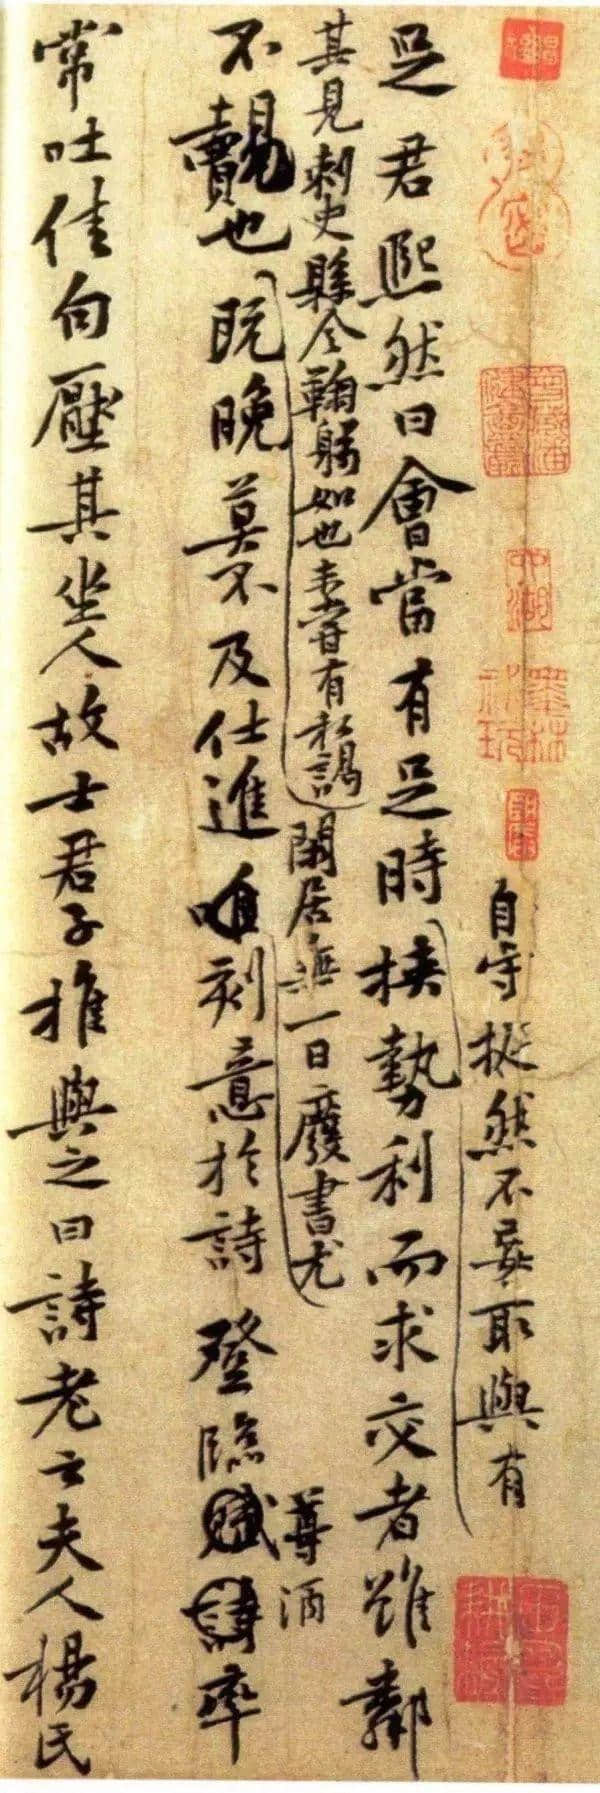 自守挺然不妄取與有
足君熙然曰會當有足時挾勢利而求交者雖鄰
其見刺史縣令鞠躬如也未嘗有私謁閑居無一日廢書尤
尊酒
不覿也既晚莫不及仕進唯刻意於詩登臨賦詩率
常吐佳句壓其坐人故士君子推與之曰詩老云夫人楊氏